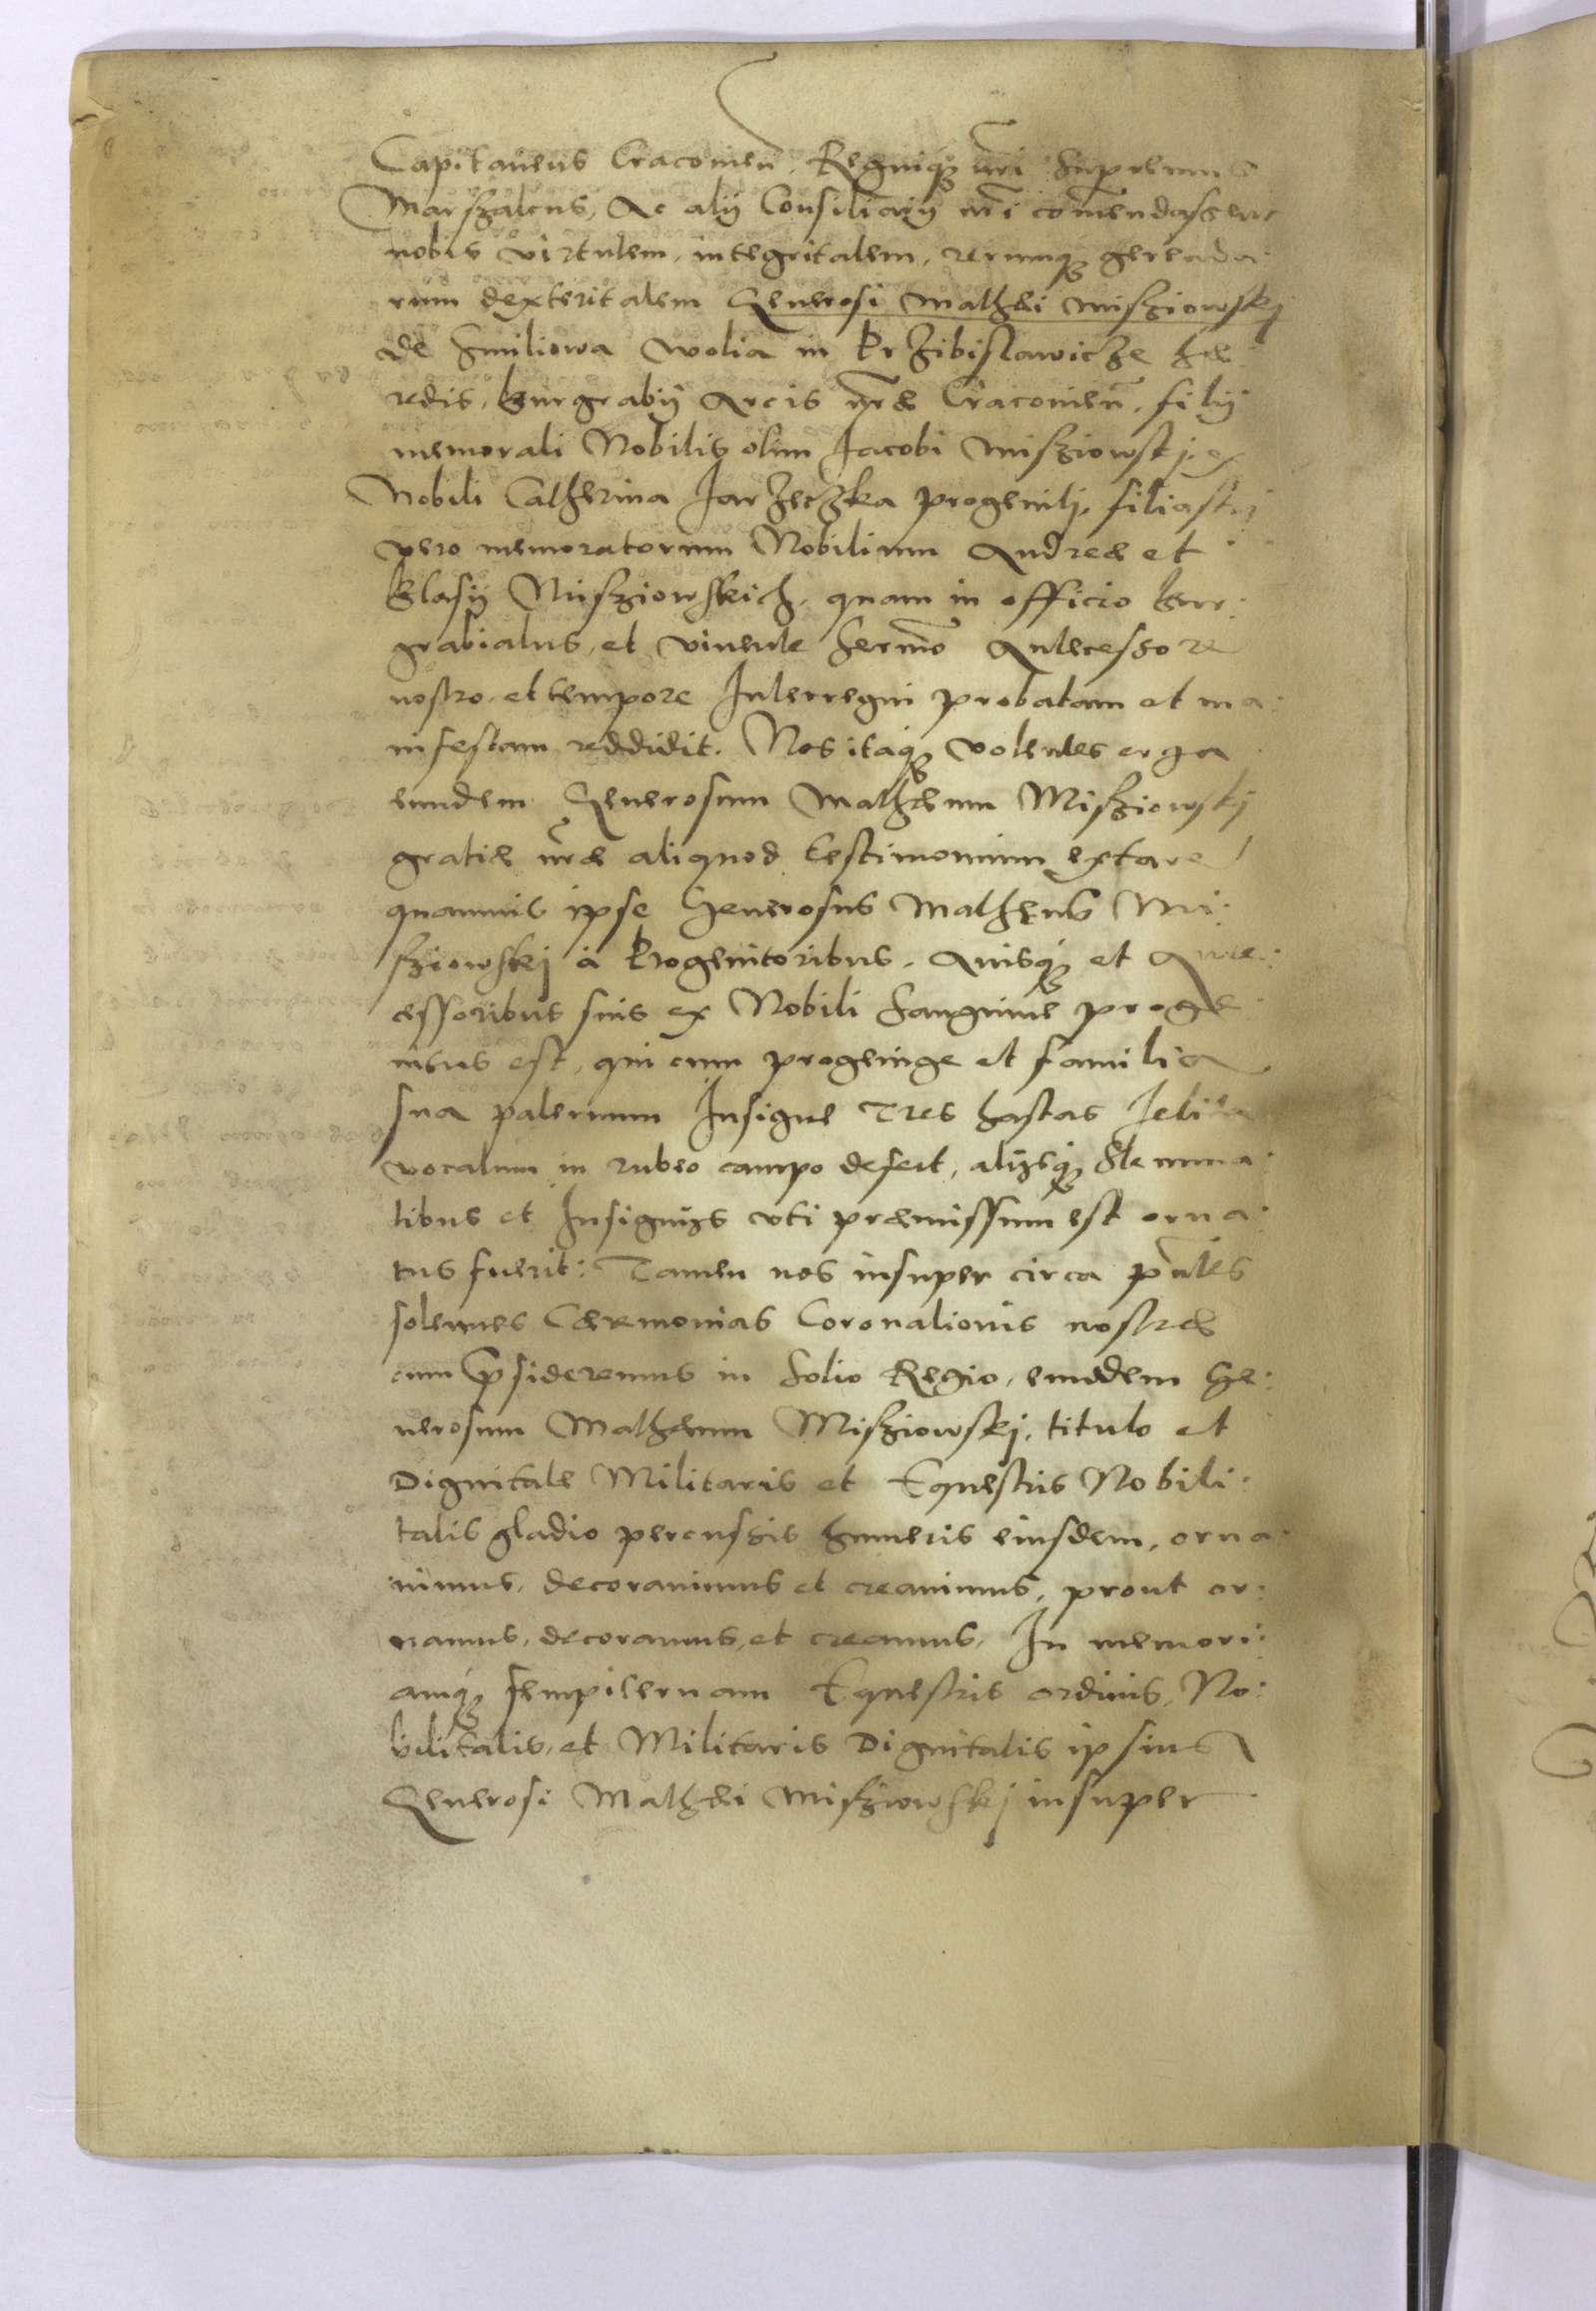 Capitaneus Cracovien̄. Regniq3 nr̄i Supremus
Marszalcus, Ac alij Consiliarij nr̄i com̄endassent
nobis virtutem, integritatem, rerumq3 gerenda:
rum dexteritatem Generosi Mathei Misziowskj
de Smiliowa Wolia in Krzibislawicze hæ:
redis, Burgrabij Arcis nr̄æ Cracovien̄, filij
memorati Nobilis olim Jacobi Misziowskj, ex
Nobili Catherina Jarzeczka progenitj, filiastri
vero memoratorum Nobilium Andreæ et
Blasij Misziowskich, quam in officio Bur:
grabiatus, et vivente Serm̄o Antecessore
nostro, et tempore Interregni probatam et ma:
nifestam reddidit. Nos itaq3 volentes erga
eundem Generosum Matheum Misziowskj
gratiæ nr̄æ aliquod testimonium extare
quamvis ipse Generosus Matheus Mi:
sziowskj à Progenitoribus, Avisq3 et Ante:
cessoribus suis ex Nobili Sanguine proge
nitus est, qui cum progenie et familia
sua paternum Insigne Tres hastas Jelita
vocatum in rubeo campo defert, alijsq3 Stemma:
tibus et Insignijs uti præmissum est orna:
tus fuerit: Tamen nos insuper circa pn̄tes
solennes Cæremonias Coronationis nostræ
cum præsideremus in Solio Regio, eundem Ge:
nerosum Matheum Misziowskj, titulo et
Dignitate Militaris et Equestris Nobili:
tatis gladio percussis humeris eiusdem, orna:
vimus, decoravimus et creavimus, prout or:
namus, decoramus, et creamus, In memori:
amq3 sempiternam Equestris ordinis, No:
bilitatis, et Militaris Dignitatis ipsius
Generosi Mathei Misziowskj insuper